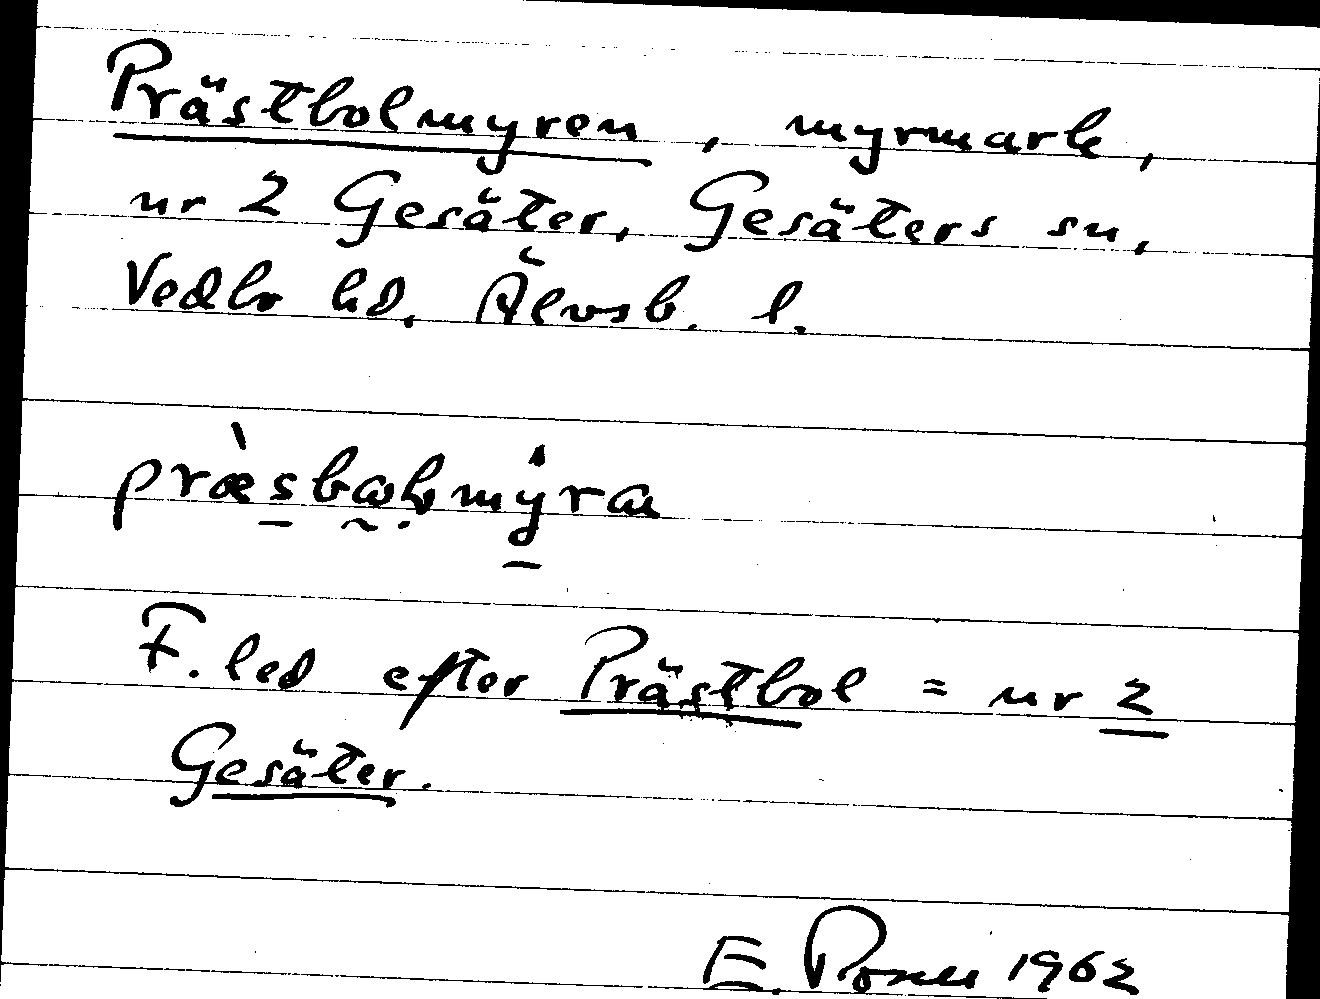 Prästbolmyren, myrmark,
nr 2 Gesäter, Gesäters sn,
Vedbo hd. Älvsb. l.
F. led efter Prästbol = nr 2
Gesäter.
E. 1962